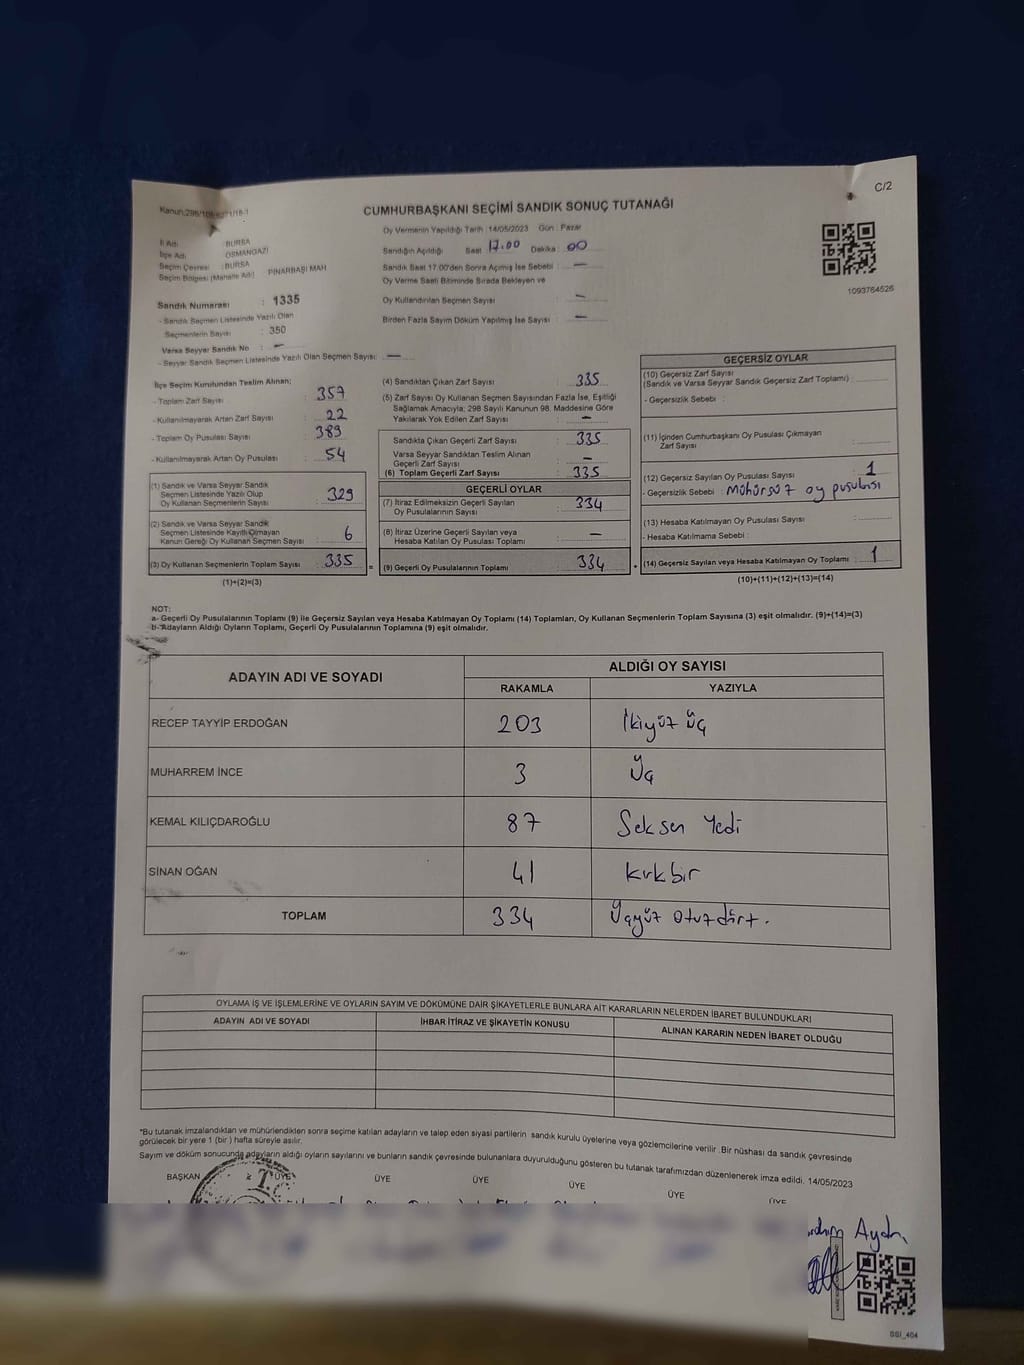 C/2
CUMHURBAŞKANI SEÇİMİ SANDIK SONUÇ TUTANAĞI
İl Adı : BURSA
İlçe Adı : OSMANGAZİ
Seçim Çevresi : BURSA
Seçim Bölgesi (Mahalle Adı) : PINARBAŞI MAH
Sandık Numarası : 1335
- Sandık Seçmen Listesinde Yazılı Olan
Seçmenlerin Sayısı : 350
Varsa Seyyar Sandık No : —
- Seyyar Sandık Seçmen Listesinde Yazılı Olan Seçmen Sayısı: —
Oy Vermenin Yapıldığı Tarih : 14/05/2023 Gün : Pazar
Sandığın Açıldığı Saat 17.00 Dakika : 00
Sandık Saat 17.00'den Sonra Açılmış İse Sebebi : —
Oy Verme Saati Bitiminde Sırada Bekleyen ve
Oy Kullandırılan Seçmen Sayısı : —
Birden Fazla Sayım Döküm Yapılmış İse Sayısı : —
1093764526
İlçe Seçim Kurulundan Teslim Alınan;
- Toplam Zarf Sayısı : 357
- Kullanılmayarak Artan Zarf Sayısı : 22
- Toplam Oy Pusulası Sayısı : 389
- Kullanılmayarak Artan Oy Pusulası : 54
(1) Sandık ve Varsa Seyyar Sandık
Seçmen Listesinde Yazılı Olup
Oy Kullanan Seçmenlerin Sayısı : 329
(2) Sandık ve Varsa Seyyar Sandık
Seçmen Listesinde Kayıtlı Olmayan
Kanun Gereği Oy Kullanan Seçmen Sayısı : 6
(3) Oy Kullanan Seçmenlerin Toplam Sayısı : 335
(1)+(2)=(3)
(4) Sandıktan Çıkan Zarf Sayısı : 335
(5) Zarf Sayısı Oy Kullanan Seçmen Sayısından Fazla İse, Eşitliği
Sağlamak Amacıyla; 298 Sayılı Kanunun 98. Maddesine Göre
Yakılarak Yok Edilen Zarf Sayısı : —
Sandıkta Çıkan Geçerli Zarf Sayısı : 335
Varsa Seyyar Sandıktan Teslim Alınan
Geçerli Zarf Sayısı : —
(6) Toplam Geçerli Zarf Sayısı : 335
GEÇERLİ OYLAR
(7) İtiraz Edilmeksizin Geçerli Sayılan
Oy Pusulalarının Sayısı : 334
(8) İtiraz Üzerine Geçerli Sayılan veya
Hesaba Katılan Oy Pusulası Toplamı : —
= (9) Geçerli Oy Pusulalarının Toplamı : 334
GEÇERSİZ OYLAR
(10) Geçersiz Zarf Sayısı
(Sandık ve Varsa Seyyar Sandık Geçersiz Zarf Toplamı) :
- Geçersizlik Sebebi :
(11) İçinden Cumhurbaşkanı Oy Pusulası Çıkmayan
Zarf Sayısı :
(12) Geçersiz Sayılan Oy Pusulası Sayısı : 1
- Geçersizlik Sebebi : Mühürsüz oy pusulası
(13) Hesaba Katılmayan Oy Pusulası Sayısı :
- Hesaba Katılmama Sebebi :
(14) Geçersiz Sayılan veya Hesaba Katılmayan Oy Toplamı : 1
(10)+(11)+(12)+(13)=(14)
NOT:
a- Geçerli Oy Pusulalarının Toplamı (9) ile Geçersiz Sayılan veya Hesaba Katılmayan Oy Toplamı (14) Toplamları, Oy Kullanan Seçmenlerin Toplam Sayısına (3) eşit olmalıdır. (9)+(14)=(3)
b- Adayların Aldığı Oyların Toplamı, Geçerli Oy Pusulalarının Toplamına (9) eşit olmalıdır.
ADAYIN ADI VE SOYADI ALDIĞI OY SAYISI
RAKAMLA YAZIYLA
RECEP TAYYİP ERDOĞAN 203 İkiyüz üç
MUHARREM İNCE 3 Üç
KEMAL KILIÇDAROĞLU 87 Seksen Yedi
SİNAN OĞAN 41 kırkbir
TOPLAM 334 Üçyüz otuzdört.
OYLAMA İŞ VE İŞLEMLERİNE VE OYLARIN SAYIM VE DÖKÜMÜNE DAİR ŞİKAYETLERLE BUNLARA AİT KARARLARIN NELERDEN İBARET BULUNDUKLARI
ADAYIN ADI VE SOYADI İHBAR İTİRAZ VE ŞİKAYETİN KONUSU ALINAN KARARIN NEDEN İBARET OLDUĞU
*Bu tutanak imzalandıktan ve mühürlendikten sonra seçime katılan adayların ve talep eden siyasi partilerin sandık kurulu üyelerine veya gözlemcilerine verilir .Bir nüshası da sandık çevresinde
görülecek bir yere 1 (bir ) hafta süreyle asılır.
Sayım ve döküm sonucunda adayların aldığı oyların sayılarını ve bunların sandık çevresinde bulunanlara duyurulduğunu gösteren bu tutanak tarafımızdan düzenlenerek imza edildi. 14/05/2023
BAŞKAN ÜYE ÜYE ÜYE ÜYE ÜYE ÜYE
T.C.
Aydın
SSI_404